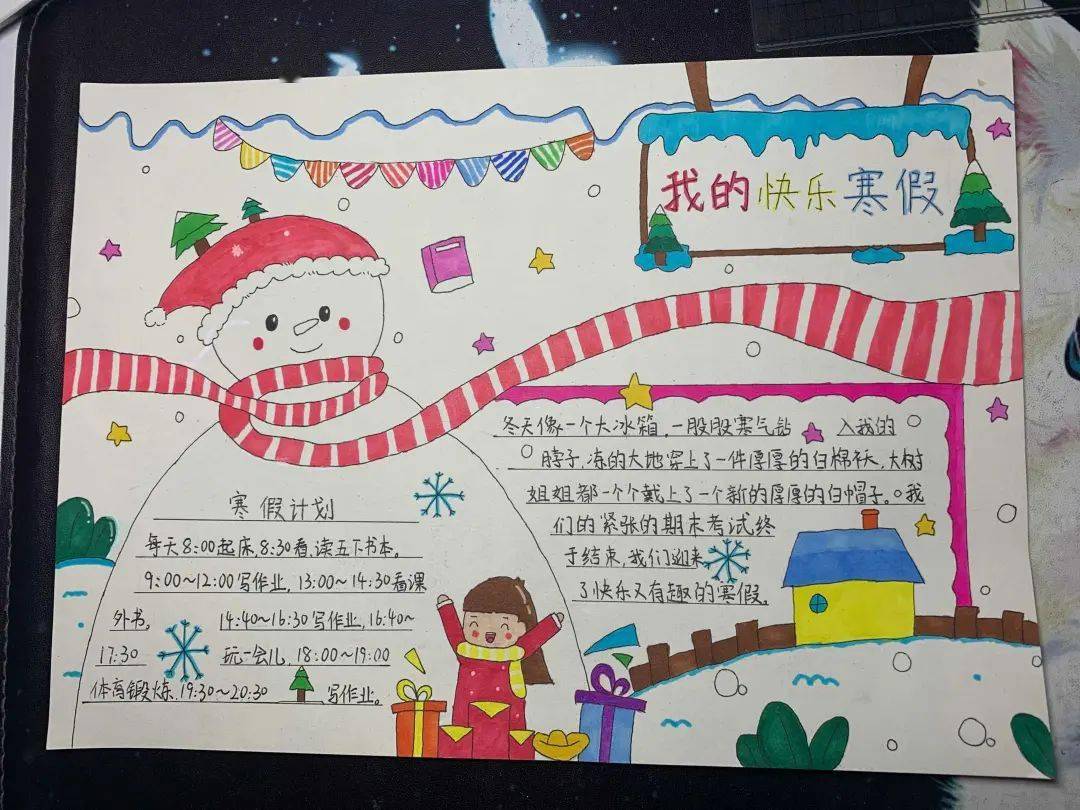 我的快乐寒假
冬天像一个大冰箱,一股股寒气钻入我的
脖子,冻的大地穿上了一件厚厚的白棉袄,大树
姐姐都一个个戴上了一个新的厚厚的白帽子。我
们的紧张的期末考试终
于结束,我们迎来
了快乐又有趣的寒假。
寒假计划
每天8:00起床,8:30看,读五下书本。
9:00~12:00写作业,13:00~14:30看课
外书。14:40~16:30写作业,16:40~
17:30玩一会儿,18:00~19:00
体育锻炼,19:30~20:30写作业。